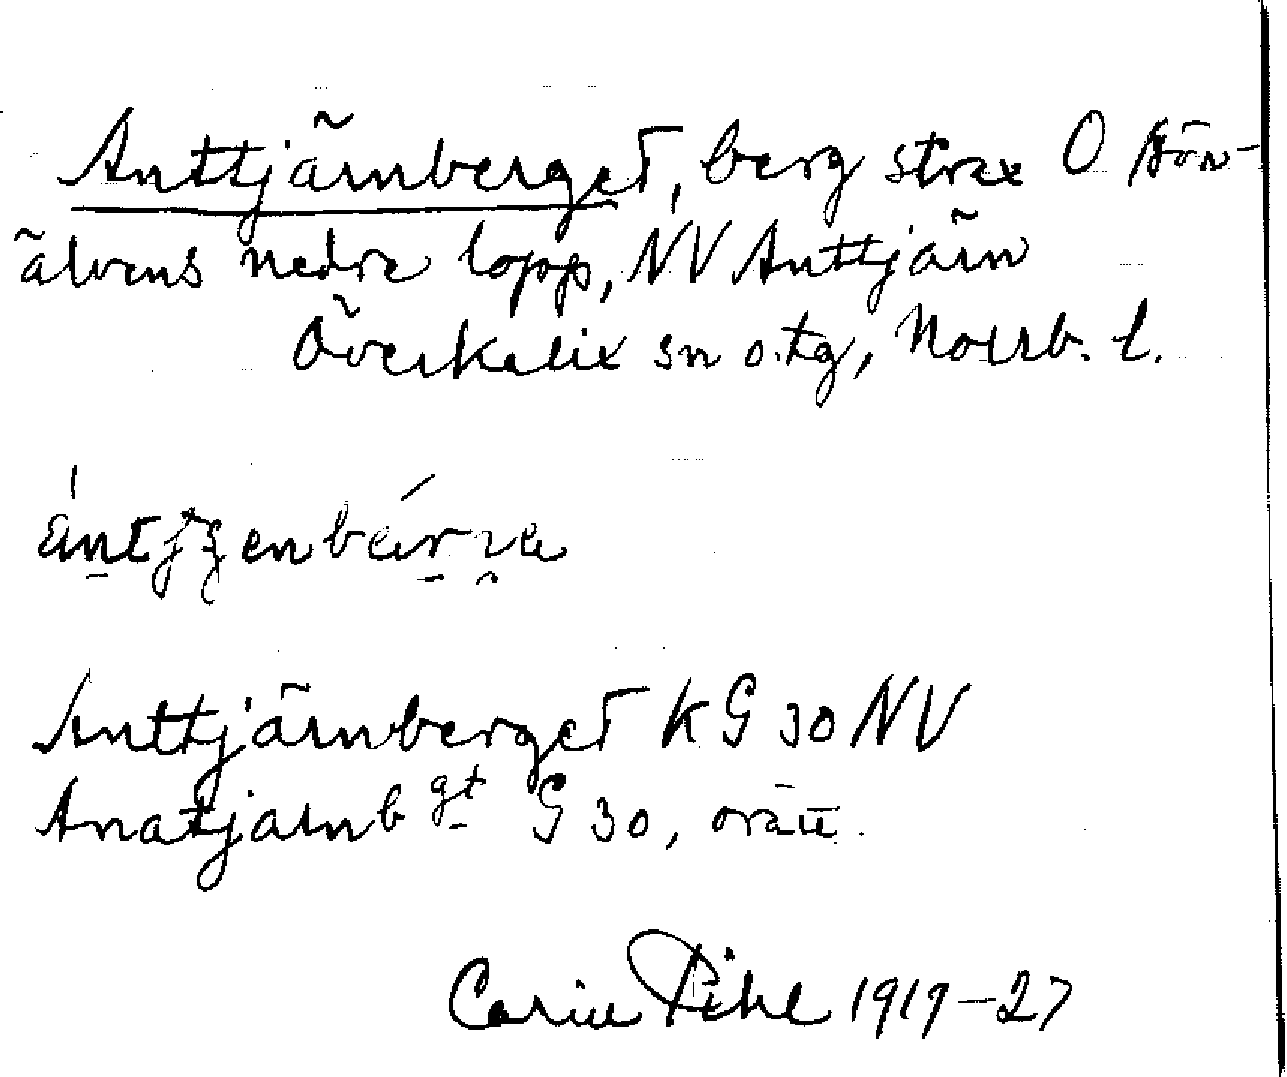 Anttjärnberget, berg strax O Hön-
älvens nedre lopp, NV Anttjärn
Överkalix sn o. tg, Norrb. l.
Anttjärnberget KG 30 NV
Anatjärnb gt G 30, orätt.
Carin Pihl 1919–27